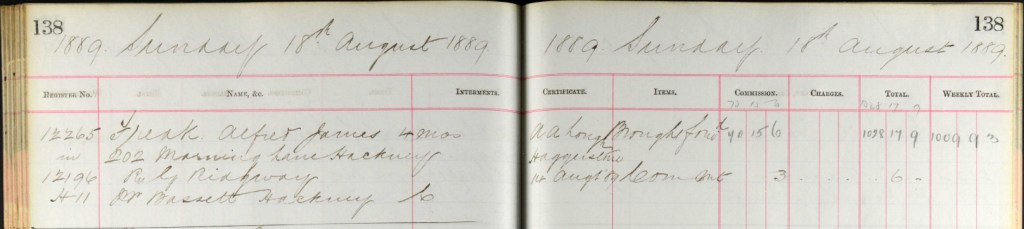 138
1889. Sunday 18th August 1889
Register No. Name, &c. Interments.
12265 Speak Alfred James 4 mos
in 202 Morning Lane Hackney
12196 Rev G Ridgway
H 11 Bassett Hackney
138
1889. Sunday 18th August 1889.
Certificate. Items, Commission. Charges. Total. Weekly Total.
17 9
A A Long Brought ford 40 15 6 1028 17 9 1009 9 3
Haggerston
Augt Com 3 . . . . 6 -